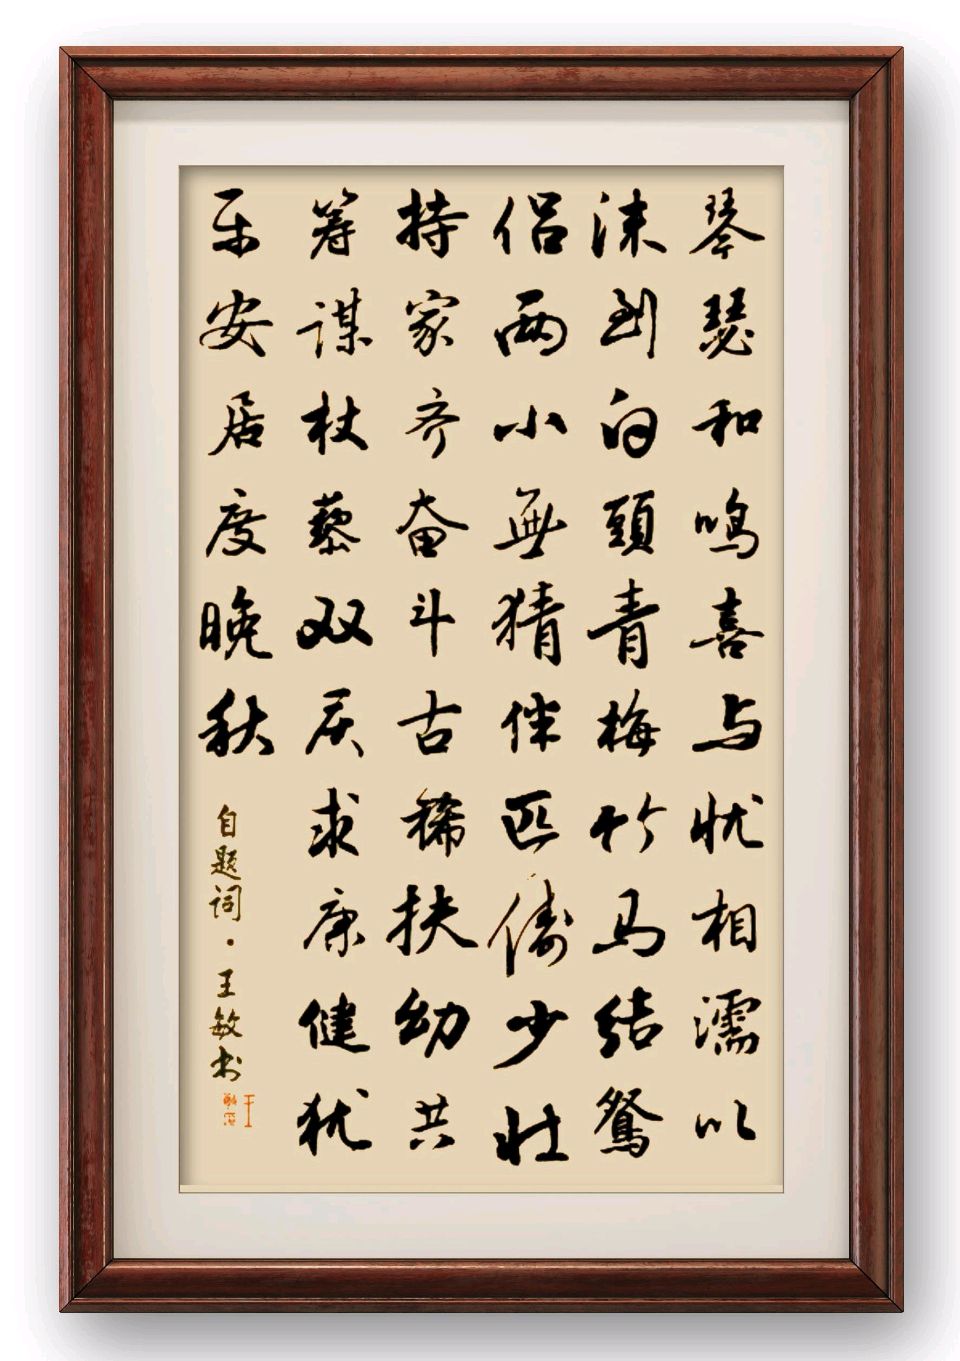 琴瑟和鸣喜与忧相濡以
沫到白頭青梅竹马结鴛
侣两小無猜伴匹俦少壮
持家齐奋斗古稀扶幼共
筹谋杖藜双求康健犹
乐安居度晚秋
自题词·王敏书